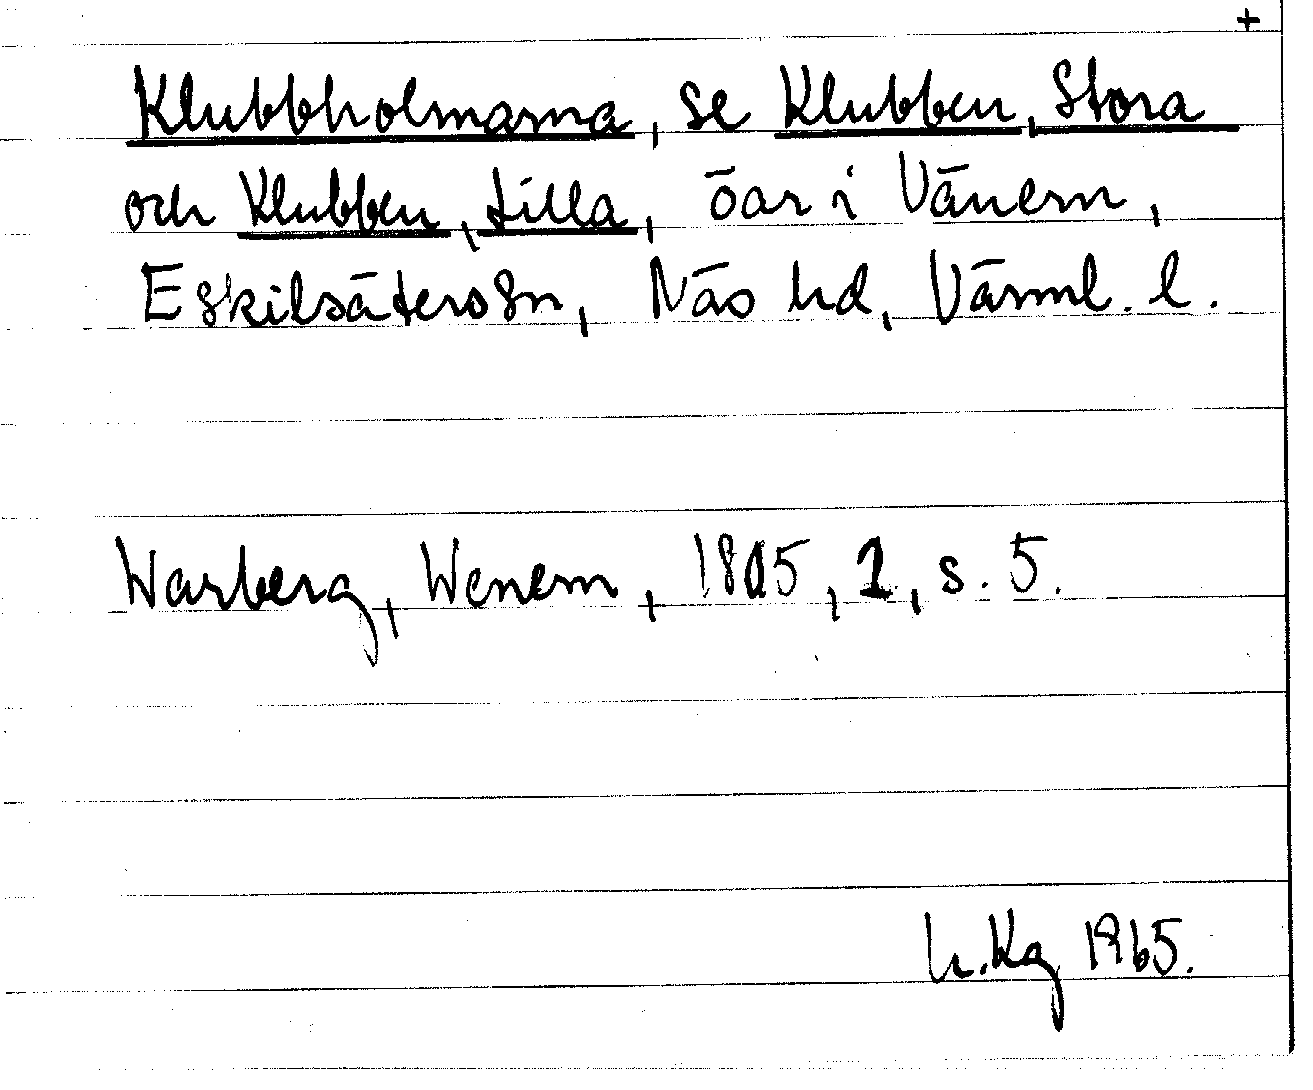 +
Klubbholmarna, se Klubben, Stora
och Klubben, Lilla, öar i Vänern,
Eskilsäters sn, Näs hd, Värml. l.
Warberg, Wenern, 1805, 1, s. 5.
Kg 1965.